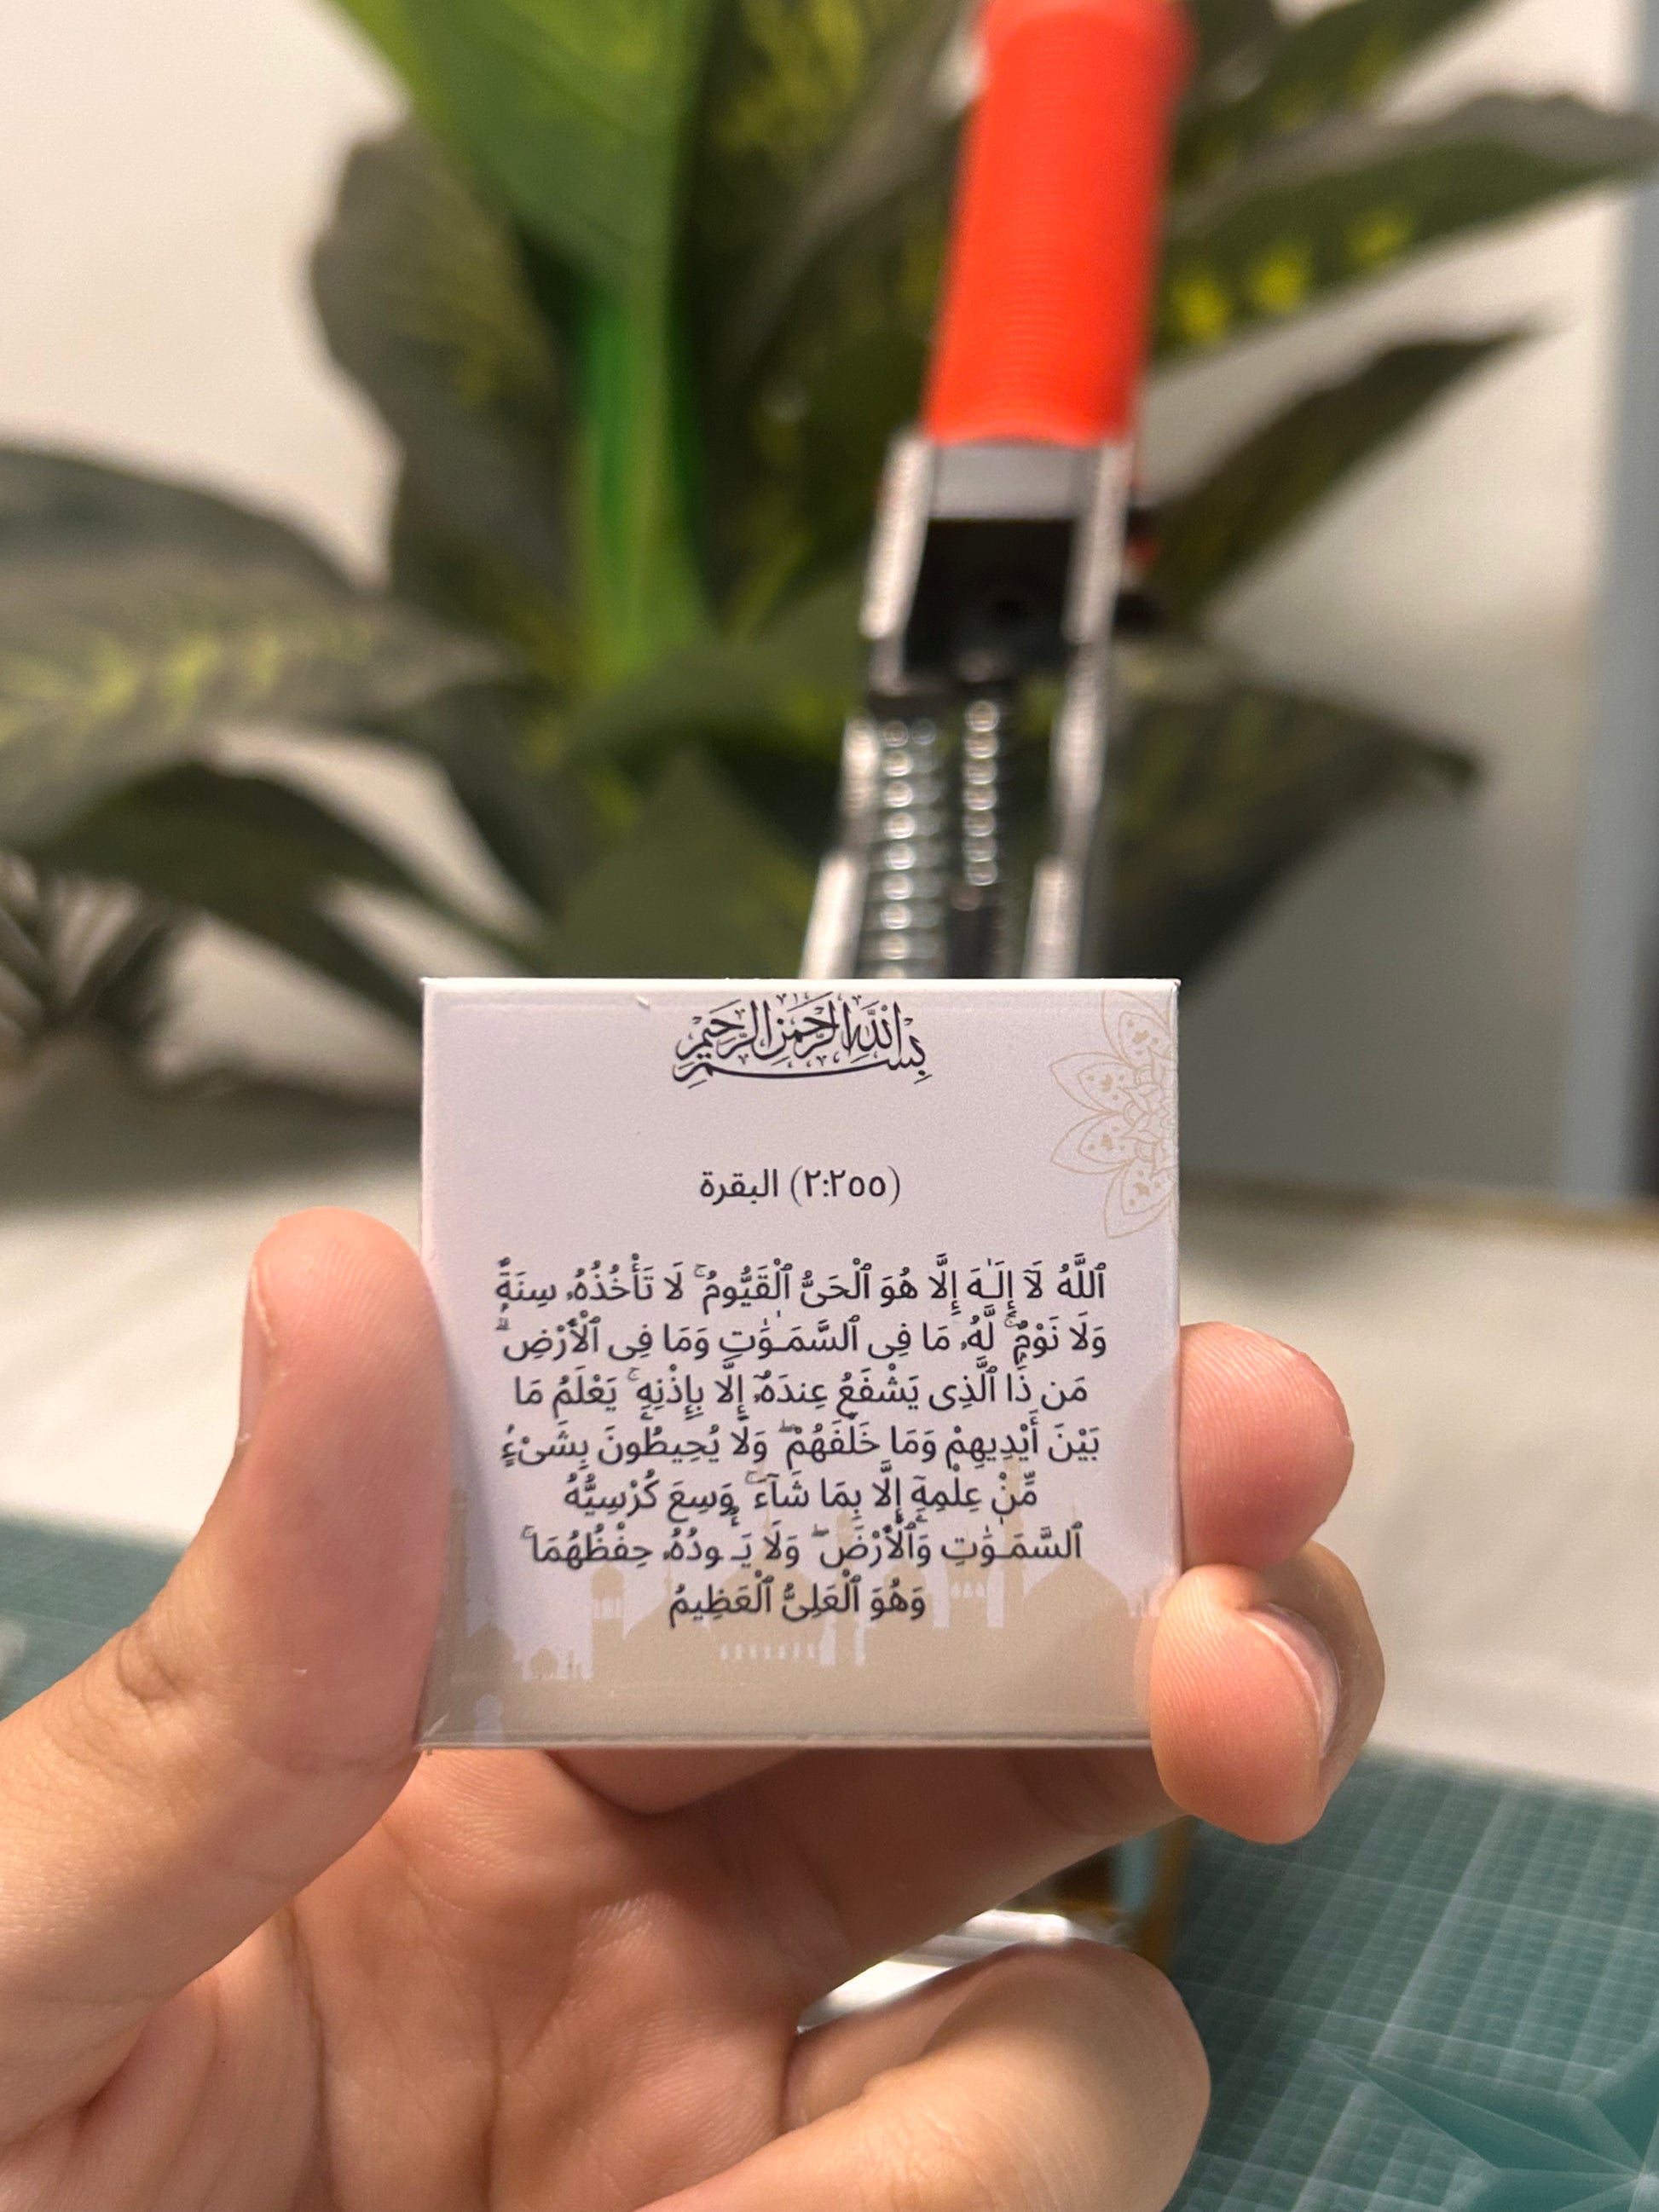 بسم الله الرحمن الرحيم
(٢:٢٥٥) البقرة
ٱللَّهُ لَآ إِلَـٰهَ إِلَّا هُوَ ٱلْحَىُّ ٱلْقَيُّومُ ۚ لَا تَأْخُذُهُۥ سِنَةٌ
وَلَا نَوْمٌ ۚ لَّهُۥ مَا فِى ٱلسَّمَـٰوَٰتِ وَمَا فِى ٱلْأَرْضِ ۗ
مَن ذَا ٱلَّذِى يَشْفَعُ عِندَهُۥٓ إِلَّا بِإِذْنِهِۦ ۚ يَعْلَمُ مَا
بَيْنَ أَيْدِيهِمْ وَمَا خَلْفَهُمْ ۖ وَلَا يُحِيطُونَ بِشَىْءٍۢ
مِّنْ عِلْمِهِۦٓ إِلَّا بِمَا شَآءَ ۚ وَسِعَ كُرْسِيُّهُ
ٱلسَّمَـٰوَٰتِ وَٱلْأَرْضَ ۖ وَلَا يَـُٔودُهُۥ حِفْظُهُمَا ۚ
وَهُوَ ٱلْعَلِىُّ ٱلْعَظِيمُ